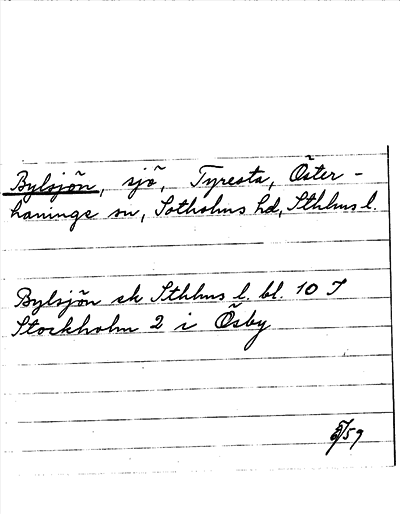 Bylsjön, sjö, Tyresta, Öster-
haninge sn, Sotholms hd, Sthlms l.
Bylsjön ek Sthlms l. bl. 10 I
Stockholm 2 i Ösby